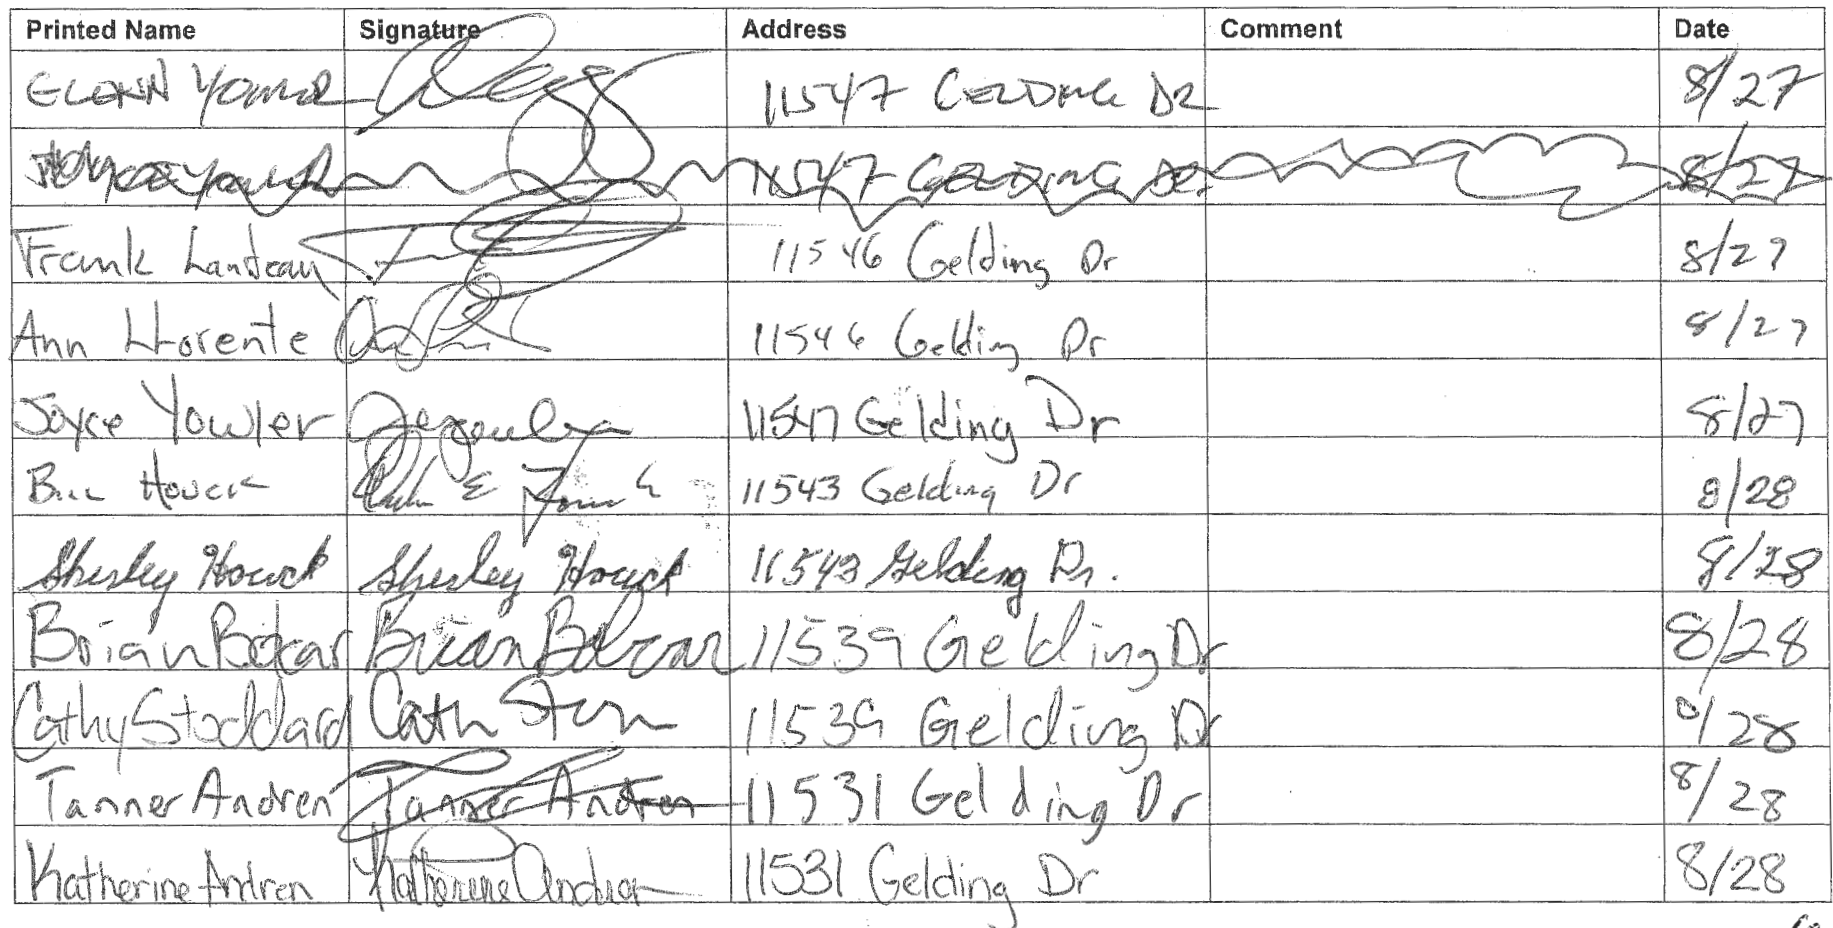 Printed Name Signature Address Comment Date
11547 GELDING DR 8/27
11547 GELDING DR. 8/27
Frank 11546 Gelding Dr 8/27
Ann Llorente 11546 Gelding Dr 8/27
Joyce Yowler 11547 Gelding Dr 8/27
Bill Houck 11543 Gelding Dr 8/28
Shirley Houck Shirley Houck 11543 Gelding Dr. 8/28
Brian Brian 11539 Gelding Dr 8/28
Cathy Stoddard Cath 11539 Gelding Dr 8/28
Tanner Andren Tanner Andren 11531 Gelding Dr 8/28
Katherine Andren Katherine Andren 11531 Gelding Dr 8/28